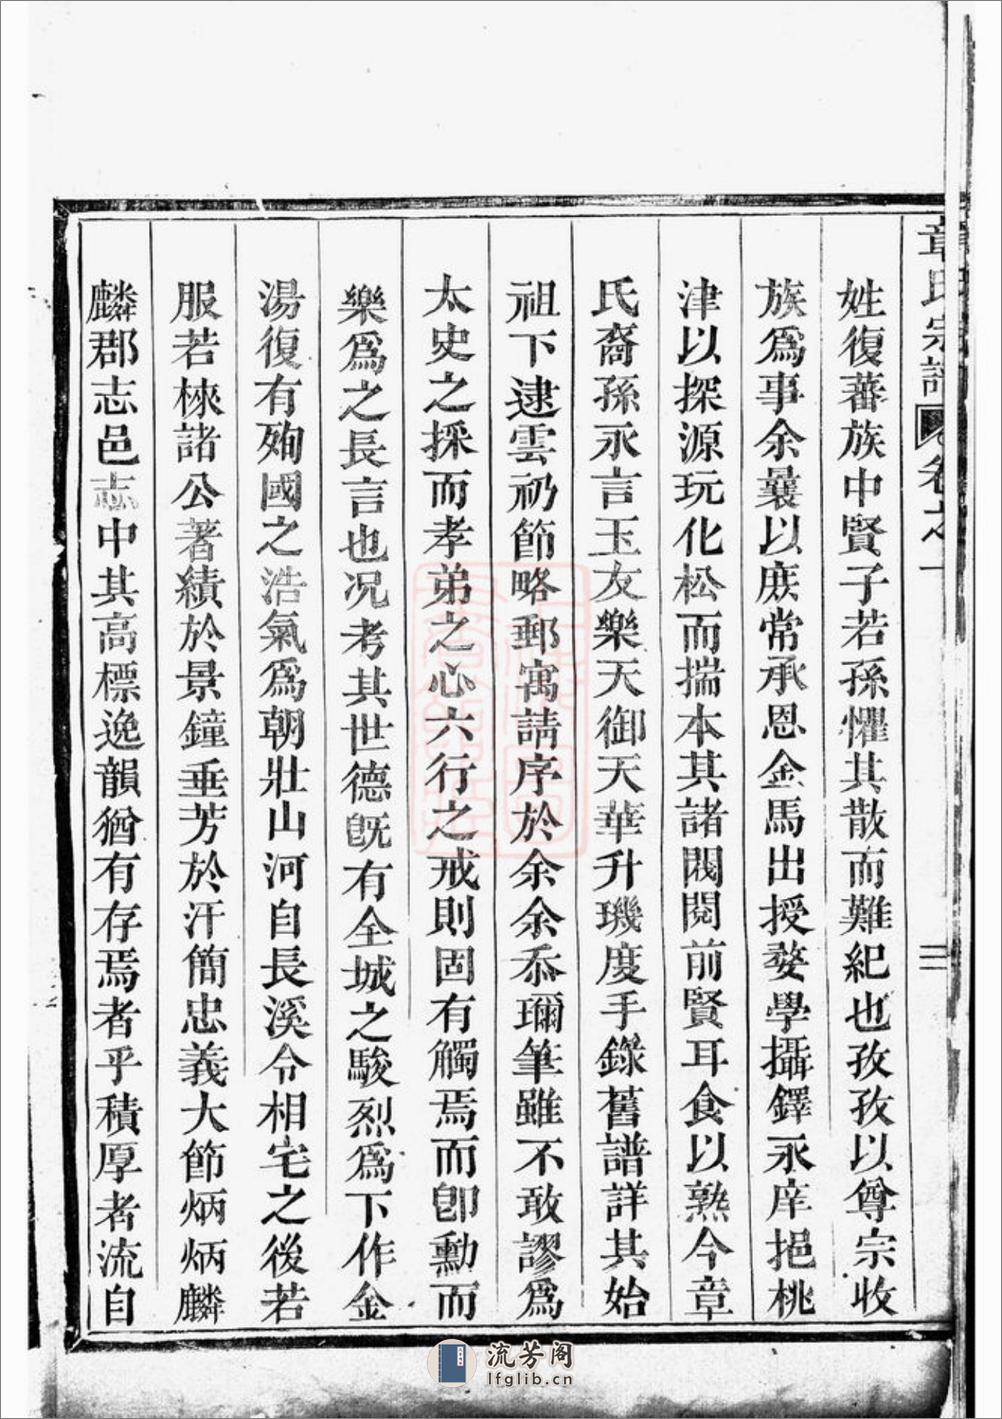 章氏宗譜 卷之一 三
姓復蕃族中賢子若孫懼其散而難紀也孜孜以尊宗收
族爲事余曩以庶常承恩金馬出授婺學攝鐸永庠挹桃
津以探源玩化松而揣本其諸閥閱前賢耳食以熟今章
氏裔孫永言玉友樂天御天華升璣度手錄舊譜詳其始
祖下逮雲礽節略郵寓請序於余余忝珥筆雖不敢謬爲
太史之採而孝弟之心六行之戒則固有觸焉而卽勳而
樂爲之長言也况考其世德旣有全城之駿烈爲下作金
湯復有殉國之浩氣爲朝壯山河自長溪令相宅之後若
服若楝諸公著績於景鐘垂芳於汗簡忠義大節炳炳麟
麟郡志邑志中其高標逸韻猶有存焉者乎積厚者流自
流芳阁
lfglib.cn